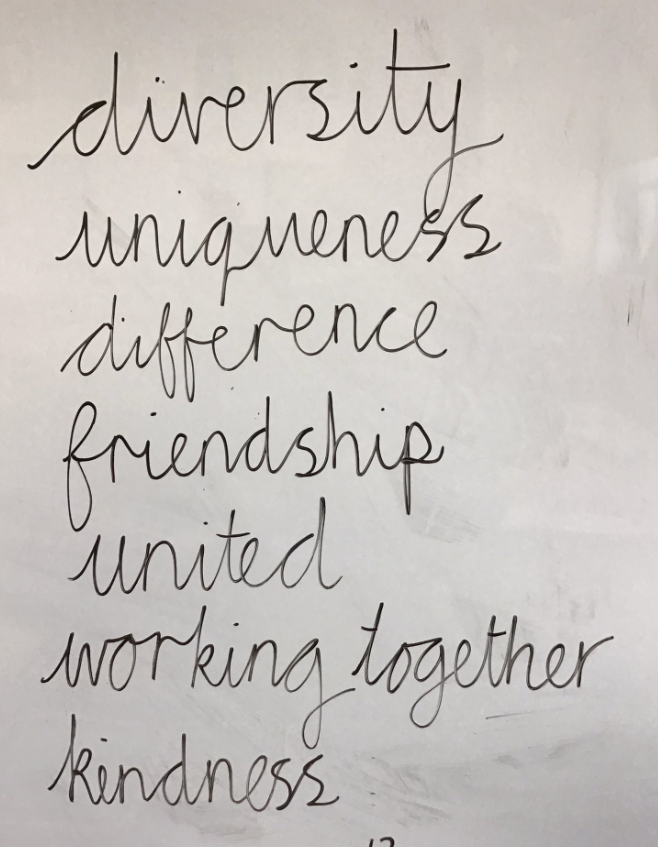 diversity
uniqueness
difference
friendship
united
working together
kindness